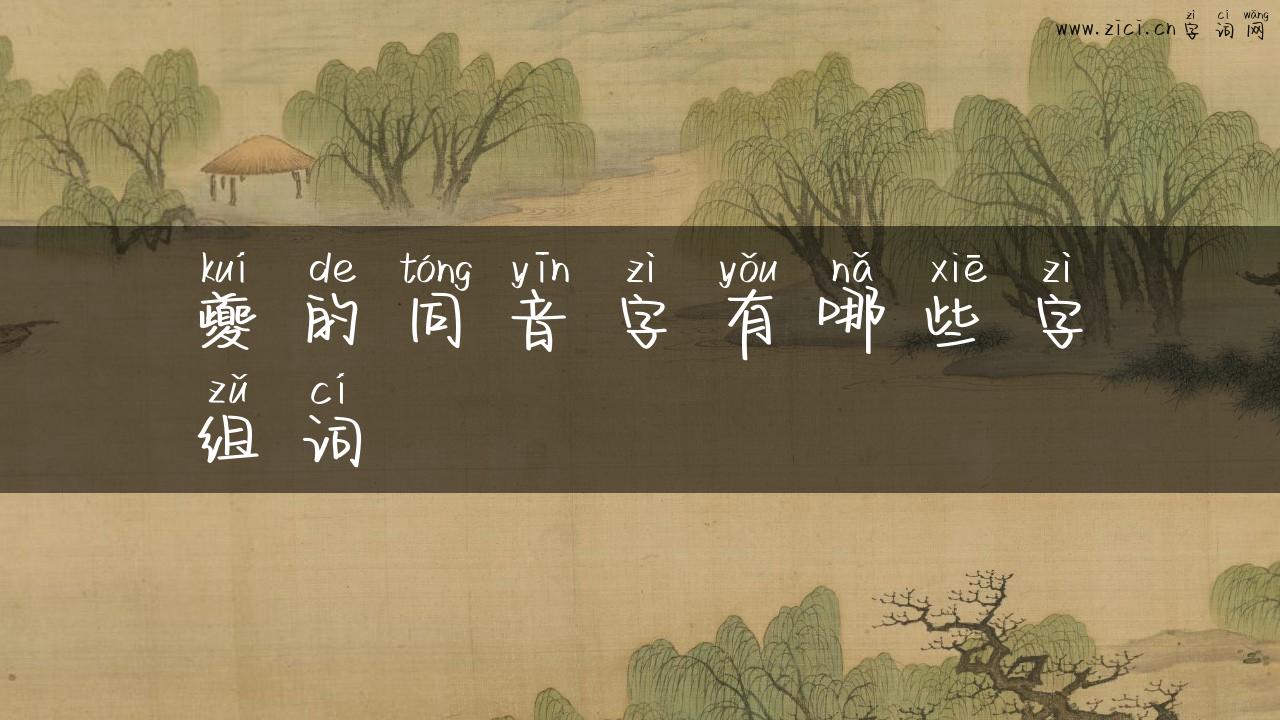 zì cí wǎng
www.zici.cn 字 词 网
kuí de tóng yīn zì yǒu nǎ xiē zì
夔 的 同 音 字 有 哪 些 字
zǔ cí
组 词